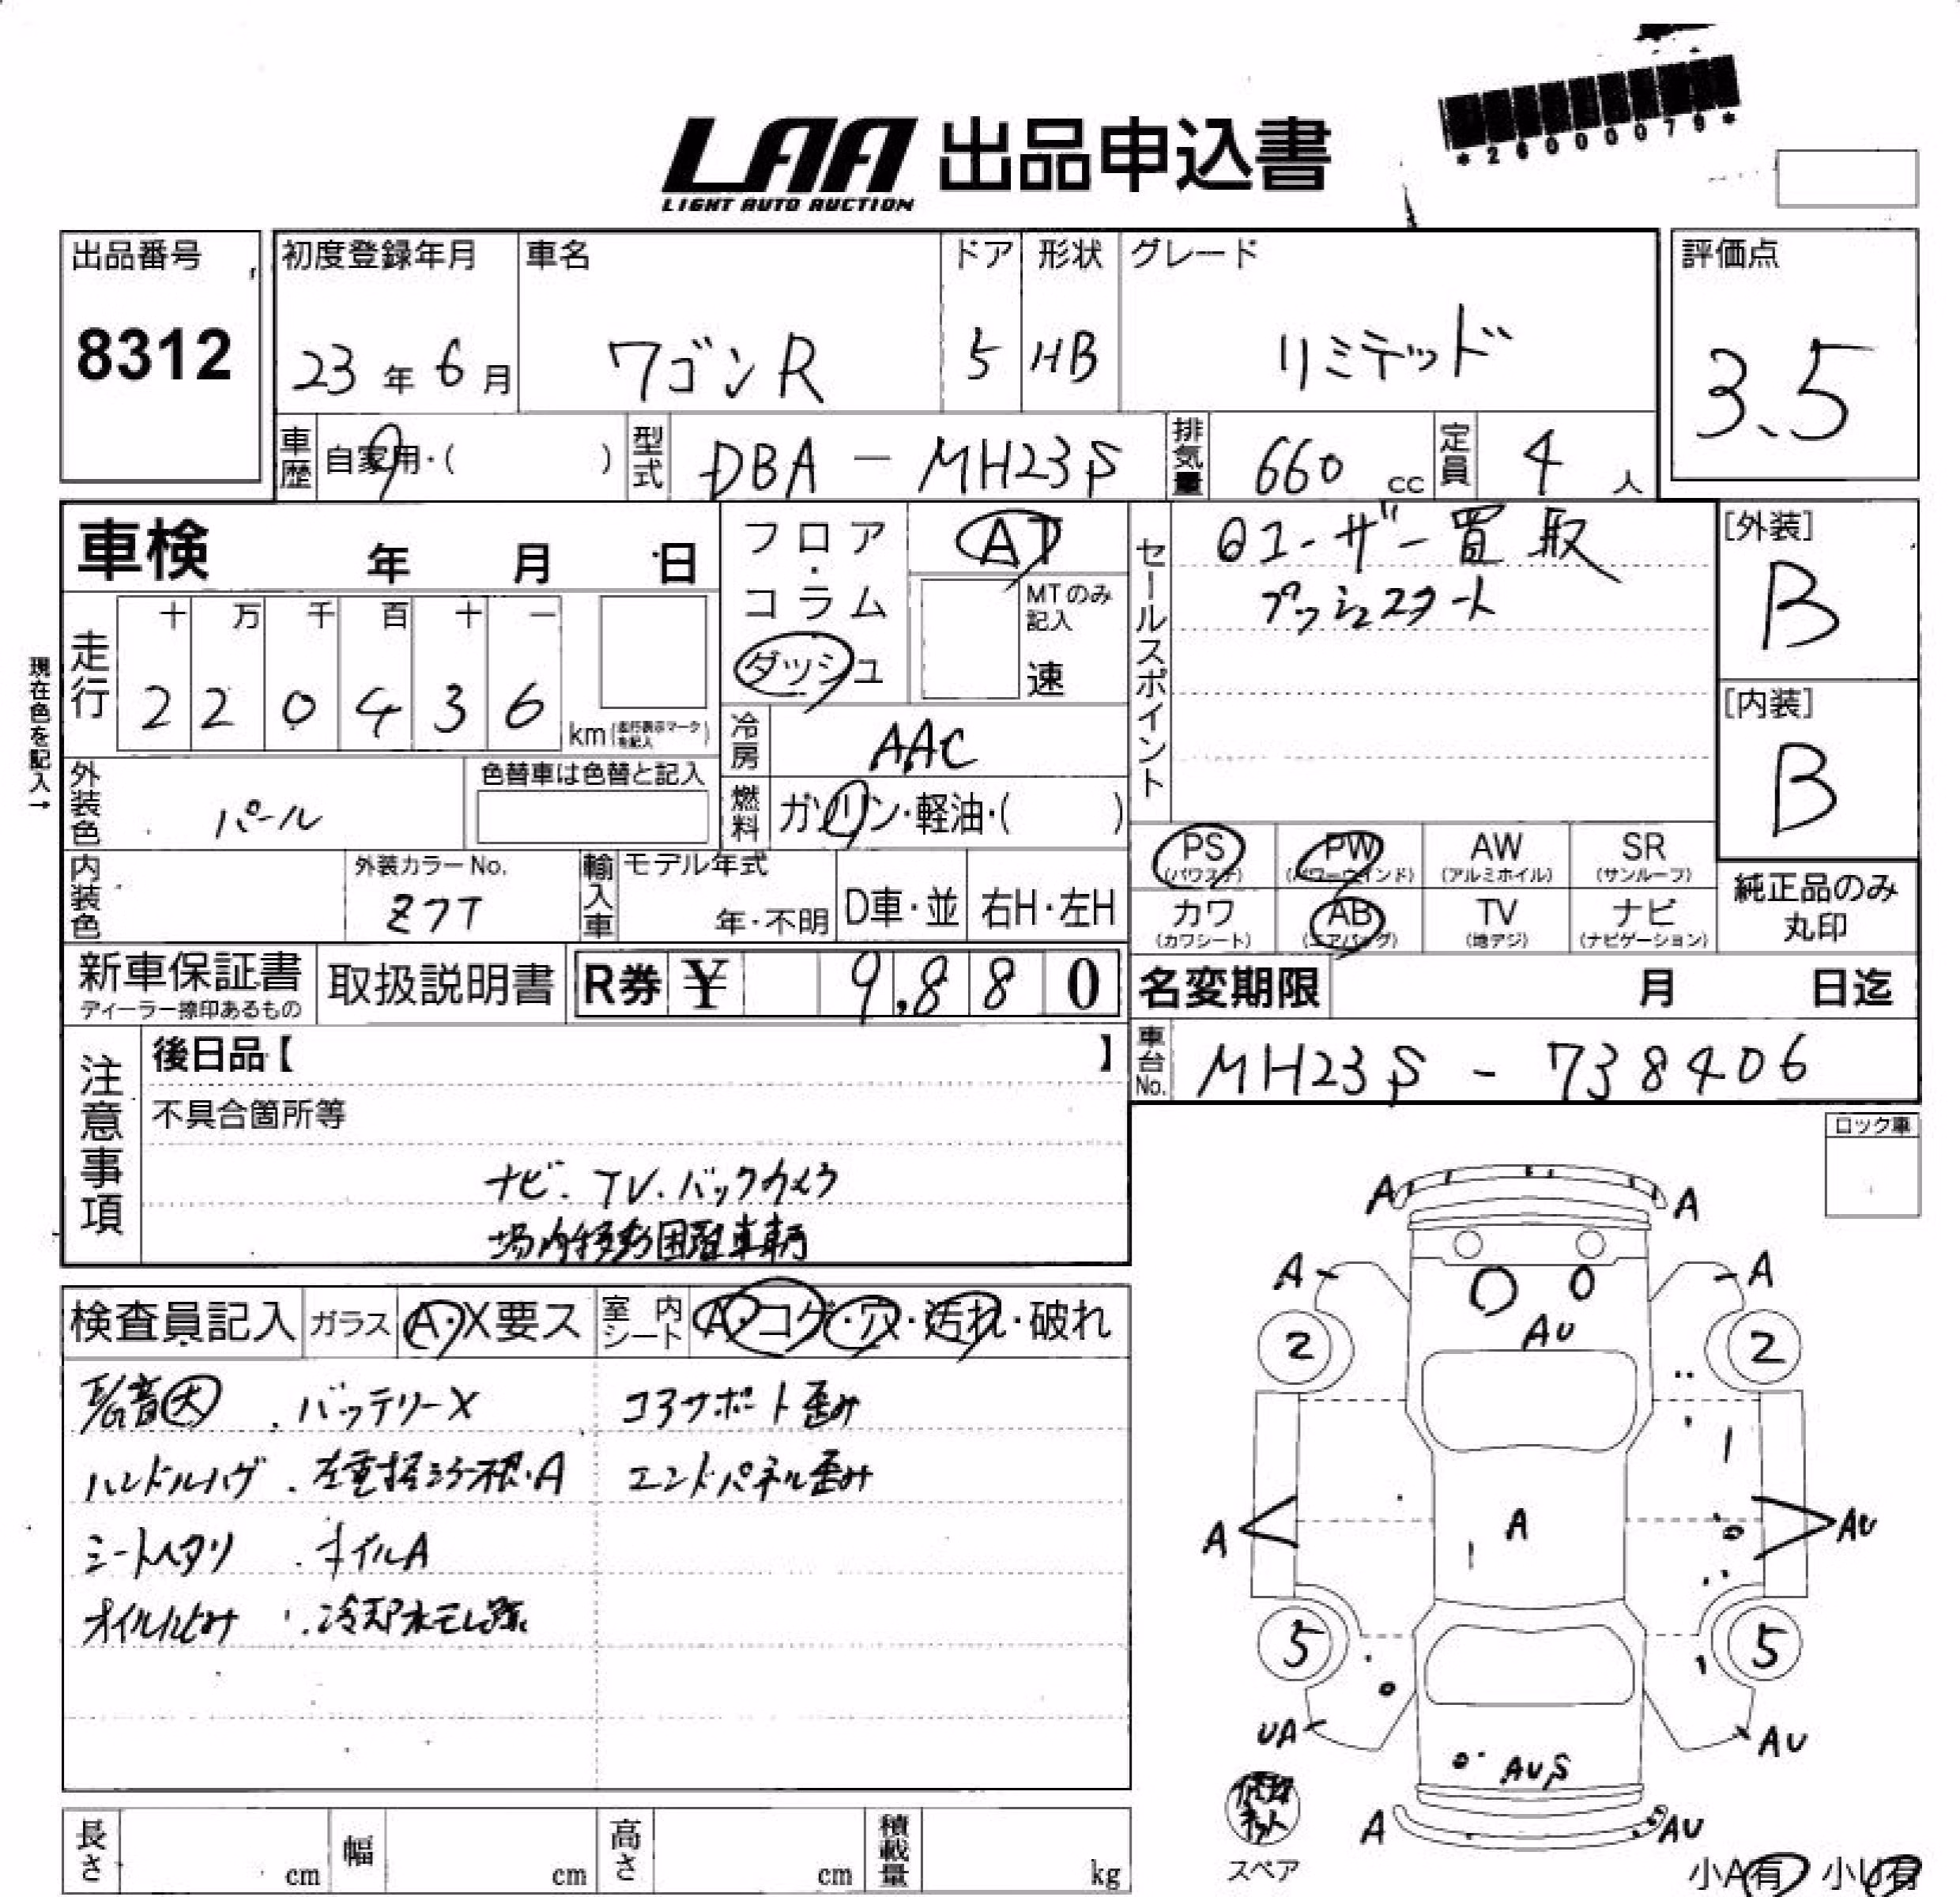 *26000079*
LAA 出品申込書
LIGHT AUTO AUCTION
出品番号 初度登録年月 車名 ドア 形状 グレード 評価点
8312 23年6月 ワゴンR 5 HB リミテッド 3.5
車歴 自家用・( ) 型式 DBA-MH23S 排気量 660cc 定員 4人
車検 年 月 日 フロア・コラム ダッシュ AT セールスポイント ユーザー買取 [外装]
MTのみ記入 速 プッシュスタート B
現在色を記入→
走行 十 万 千 百 十 一
2 2 0 4 3 6 km (走行表示マークを記入)
[内装]
B
冷房 AAC
外装色 パール 色替車は色替と記入 燃料 ガソリン・軽油・( )
PS (パワステ) PW (パワーウインド) AW (アルミホイル) SR (サンルーフ)
カワ (カワシート) AB (エアバッグ) TV (地デジ) ナビ (ナビゲーション) 純正品のみ丸印
内装色 外装カラーNo. Z7T 輸入車 モデル年式 年・不明 D車・並 右H・左H
新車保証書 ディーラー捺印あるもの 取扱説明書 R券 ¥ 9,880 名変期限 月 日迄
車台No. MH23S-738406
注意事項 後日品【 】
不具合箇所等
ナビ.TV.バックカメラ
場内移動困難車輌
ロック車
検査員記入 ガラス A・X要ス 室内シート A・コゲ・穴・汚れ・破れ
E/G音大 .バッテリーX コアサポート歪み
ハンドルハゲ . A エンドパネル歪み
シートヘタリ .オイルA
オイルにじみ .冷却水モレ跡
A A
A A
AU
2 2
A A AU
5 5
UA AU
AUS
A AU
修理キット
スペア
小A有 小U有
長さ cm 幅 cm 高さ cm 積載量 kg